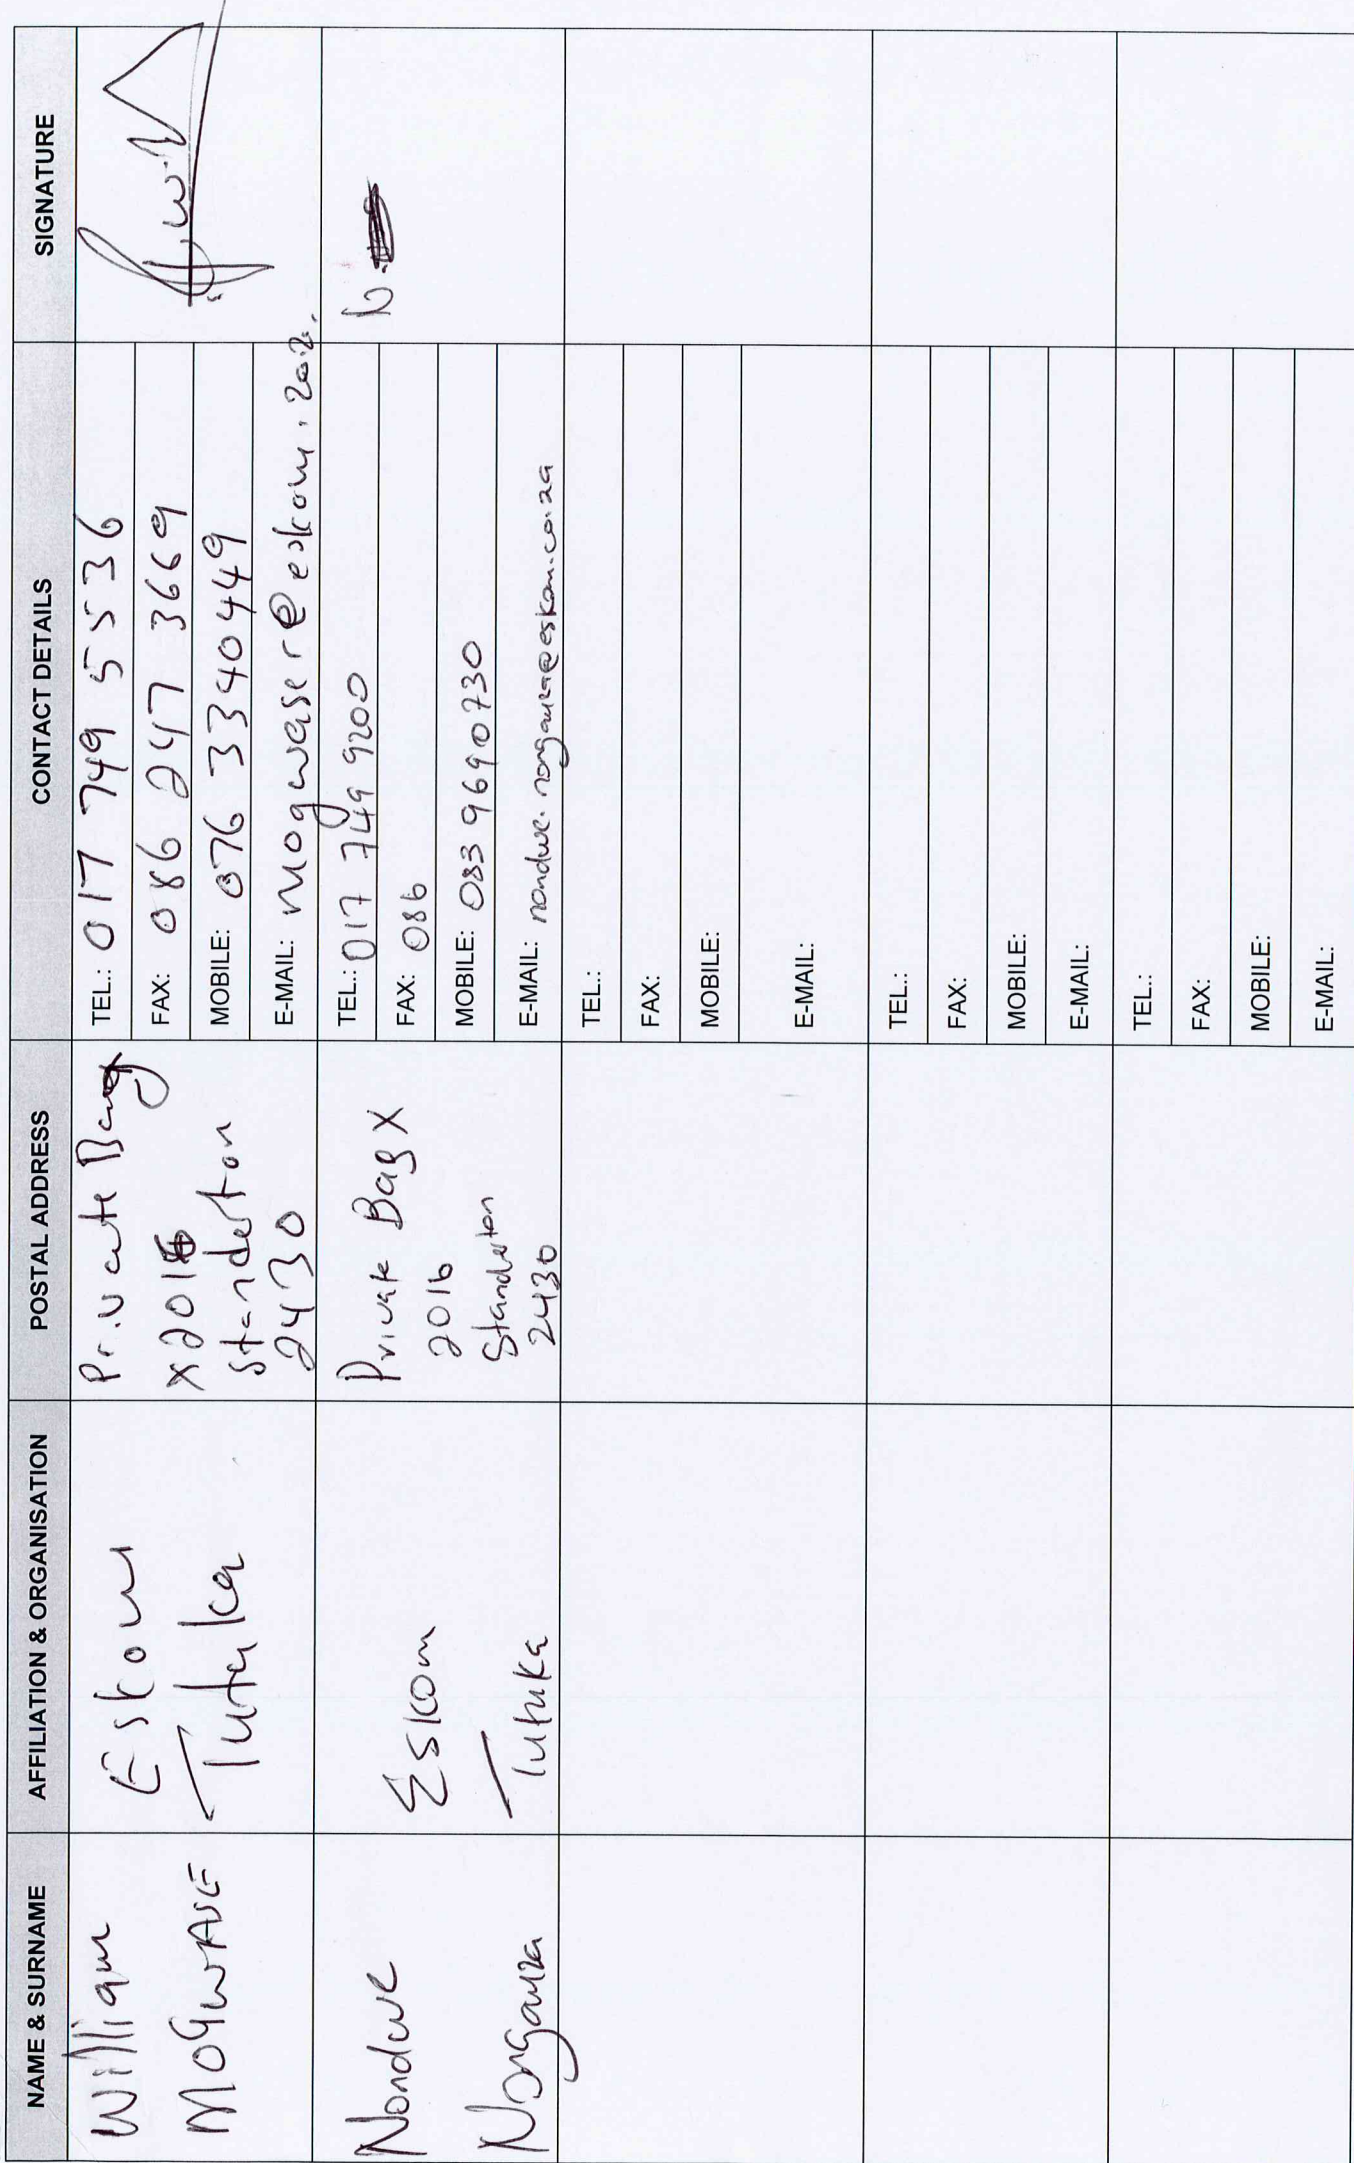 NAME & SURNAME
AFFILIATION & ORGANISATION
POSTAL ADDRESS
CONTACT DETAILS
SIGNATURE
William
MOGWASE
Eskom
Tutuka
Private Bag
X2016
Standerton
2430
TEL.: 017 749 5536
FAX: 086 247 3669
MOBILE: 076 3340449
E-MAIL: mogwaser@eskom.
Nondwe
Nongauza
Eskom
Tutuka
Private Bag X
2016
Standerton
2430
TEL.: 017 749 9200
FAX: 086
MOBILE: 083 9690730
E-MAIL: nondwe.nongauza@eskom.co.za
N.
TEL.:
FAX:
MOBILE:
E-MAIL:
TEL.:
FAX:
MOBILE:
E-MAIL:
TEL.:
FAX:
MOBILE:
E-MAIL: